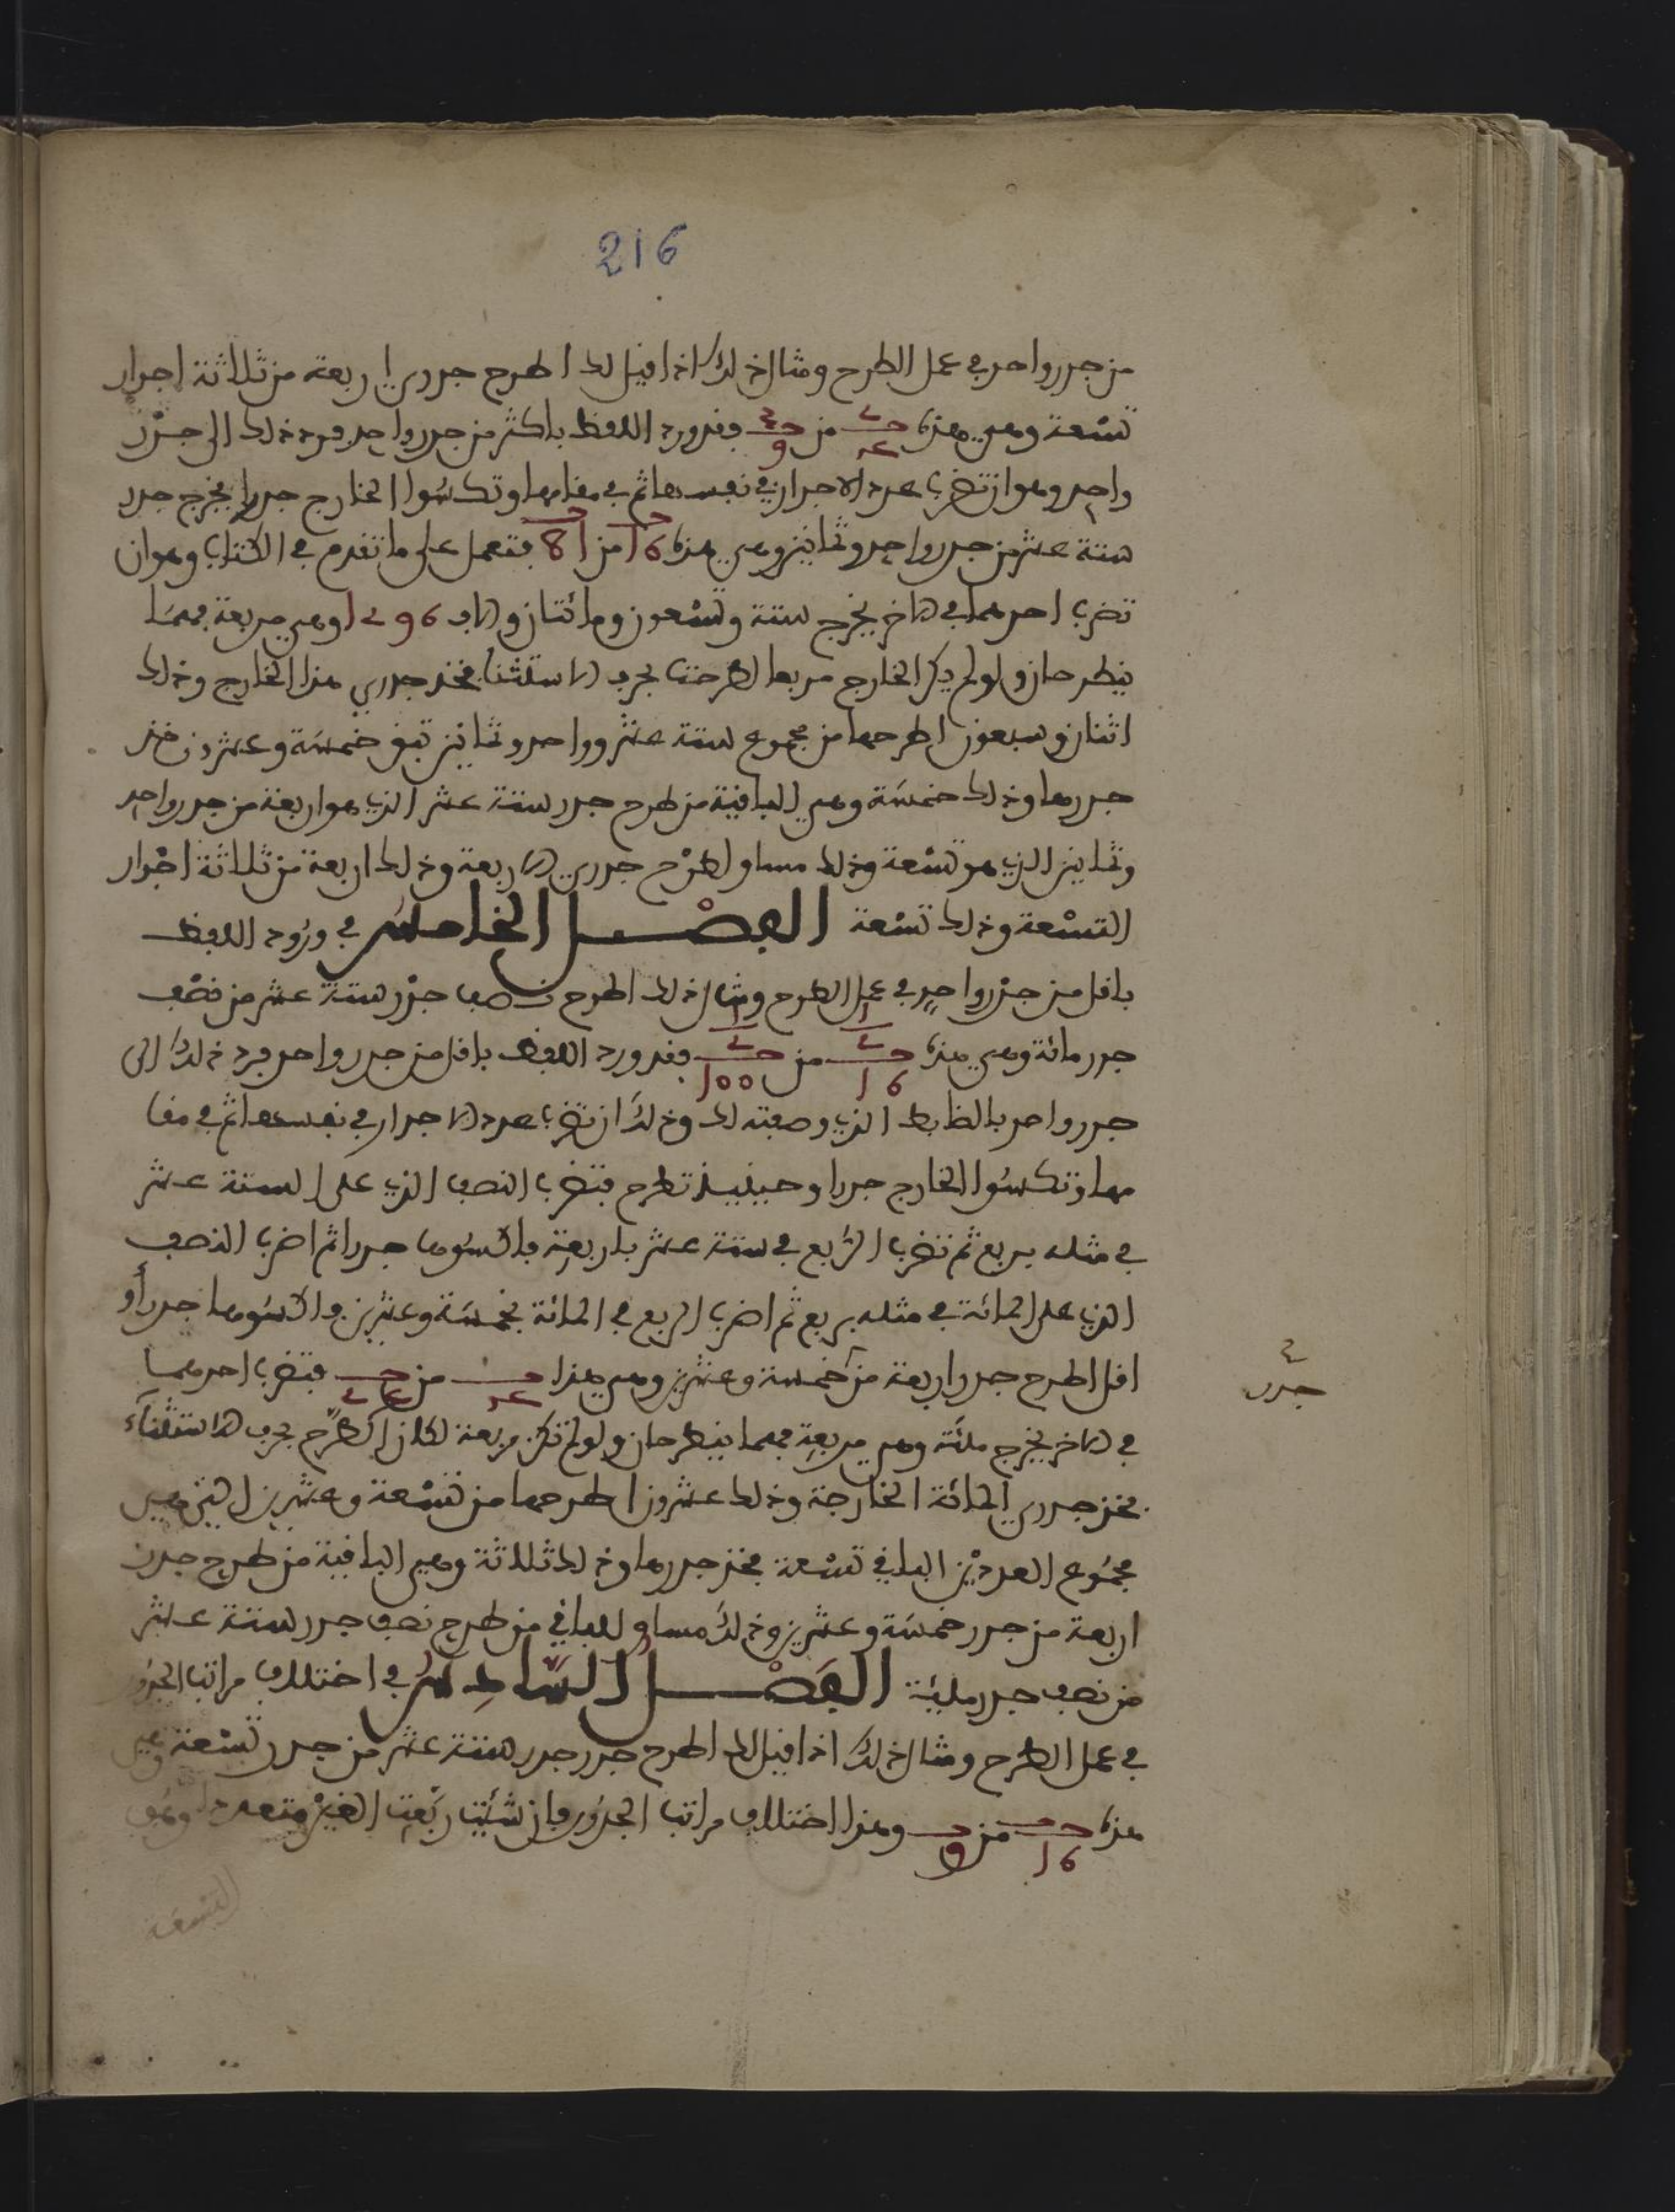 216
من جدر واحد في عمل الطرح ومثال ذلك اذا قيل لك اطرح جدري اربعة من ثلاثة اجدار
تسعة وهي هذه من فقد ورد اللفظ باكثر من جدر واحد فرد ذلك الى جدر
واحد وهو ان تضرب عدد الاجدار في نفسها ثم في مقامها وتكسوا الخارج جدرا يخرج جدر
ستة عشر من جدر واحد وثمانين وهي هذه 16 من 81 فتعمل على ما تقدم في الكتاب وهو ان
تضرب احدهما في الاخر يخرج ستة وتسعون ومائتان والف 1296 وهي مربعة فهما
ينطرحان ولو لم يكن الخارج مربعا لطرحت بحرف الاستثنا فخذ جدري هذا الخارج وذلك
اثنان وسبعون اطرحها من مجموع ستة عشر وواحد وثمانين تبق خمسة وعشرون خذ
جدرها وذلك خمسة وهي الباقية من طرح جدر ستة عشر الذي هو اربعة من جدر واحد
وثمانين الذي هو تسعة وذلك مساو لطرح جدري الاربعة وذلك اربعة من ثلاثة اجدار
التسعة وذلك تسعة الفصل الخامس في ورود اللفظ
باقل من جدر واحد في عمل الطرح ومثال ذلك اطرح نصف جدر ستة عشر من نصف
جدر مائة وهي هذه 16 من 100 فقد ورد اللفظ باقل من جدر واحد فرد ذلك الى
جدر واحد بالظابط الذي وصفته لك وذلك ان تضرب عدد الاجدار في نفسها ثم في مقا
مها وتكسوا الخارج جدرا وحينيذ تطرح فتضرب النصف الذي على الستة عشر
في مثله بربع ثم تضرب الربع في ستة عشر باربعة فاكسوها جدرا ثم اضرب النصف
الذي على المائة في مثله بربع ثم اضرب الربع في المائة بخمسة وعشرين واكسوها جدرا و
اقل اطرح جدر اربعة من خمسة وعشرين وهي هذا من فتضرب احدهما
جدر
في الاخر يخرج مائة وهي مربعة فهما ينطرحان ولو لم تكن مربعة لكان الطرح بحرف الاستثناء
فخذ جدري المائة الخارجة وذلك عشرون اطرحها من تسعة وعشرين التي هي
مجموع العددين الباقي تسعة فخذ جدرها وذلك ثلاثة وهي الباقية من طرح جدر
اربعة من جدر خمسة وعشرين وذلك مساو للباقي من طرح نصف جدر ستة عشر
من نصف جدر مائة الفصل السادس في اختلاف مراتب الجدور
في عمل الطرح ومثال ذلك اذا قيل لك اطرح جدر جدر ستة عشر من جدر تسعة وهي
هذه 16 من 9 وهذا اختلاف مراتب الجدور فان شئت ربعت الغير متعدد
التسعة